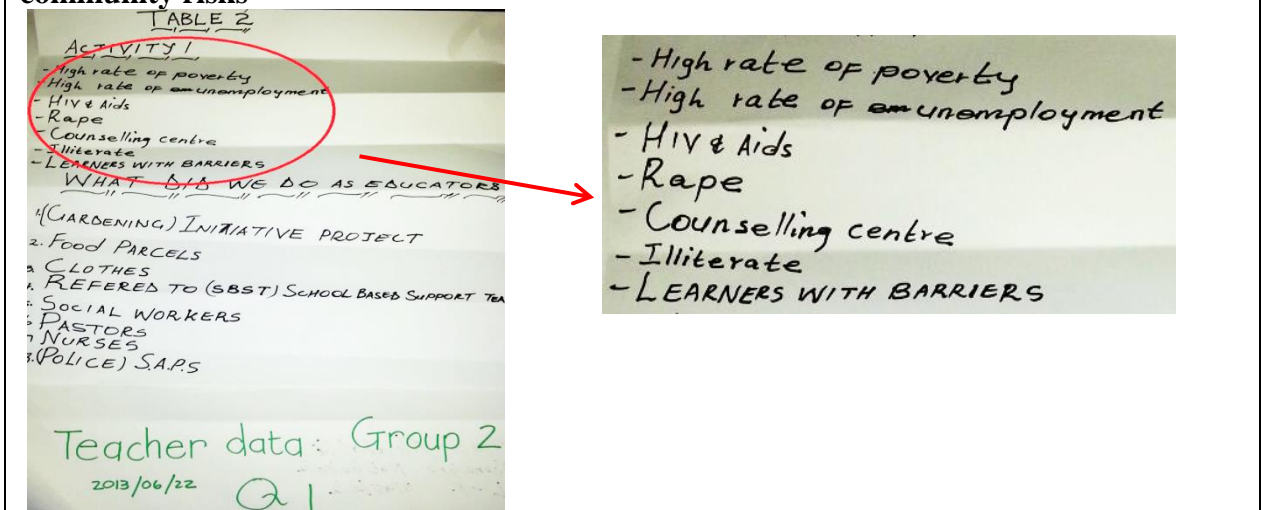 community risks
TABLE 2
ACTIVITY 1
- High rate of poverty
- High rate of unemployment
- HIV & Aids
- Rape
- Counselling centre
- Illiterate
- LEARNERS WITH BARRIERS
WHAT DID WE DO AS EDUCATORS
1. (GARDENING) INITIATIVE PROJECT
2. FOOD PARCELS
3. CLOTHES
4. REFERED TO (SBST) SCHOOL BASED SUPPORT
5. SOCIAL WORKERS
6. PASTORS
7 NURSES
8. (POLICE) S.A.P.S
Teacher data: Group 2
2013/06/22 Q1
- High rate of poverty
- High rate of unemployment
- HIV & Aids
- Rape
- Counselling centre
- Illiterate
- LEARNERS WITH BARRIERS